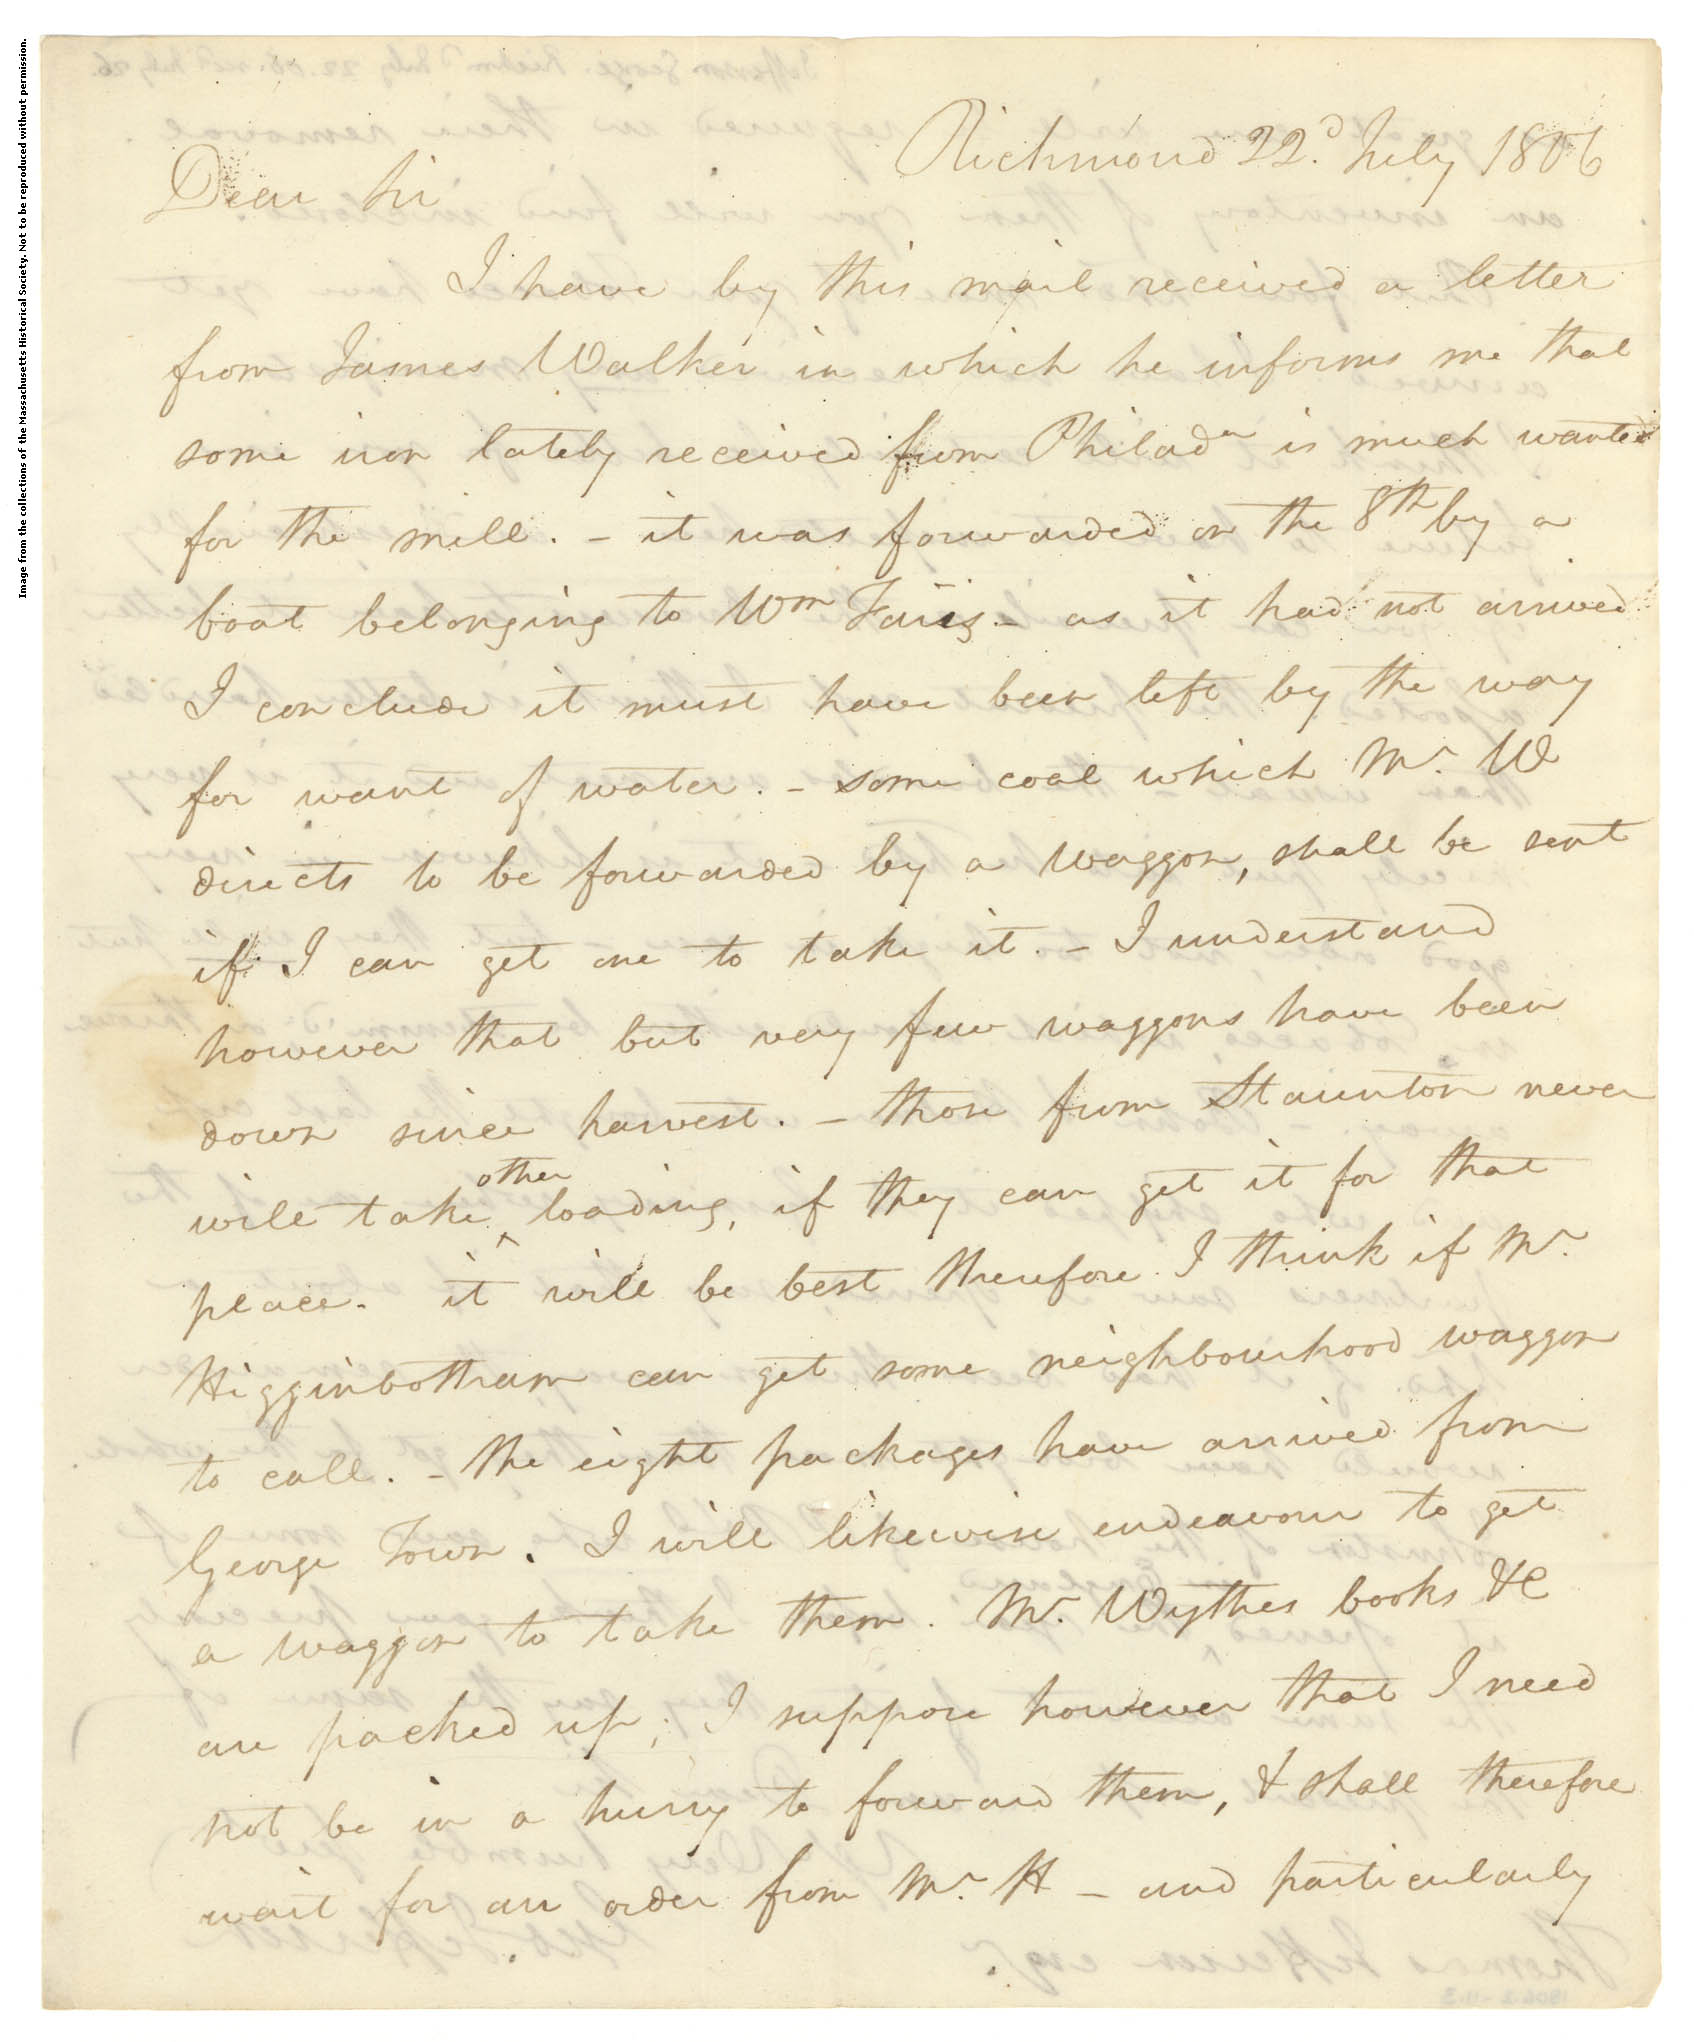 Image from the collections of the Massachusetts Historical Society. Not to be reproduced without permission.
Richmond 22.d July 1806
Dear Sir
I have by this mail received a letter
from James Walker in which he informs me that
some iron lately received from Philada is much wanted
for the mill. – it was forwarded on the 8th by a
boat belonging to Wm Faris – as it had not arrived
I conclude it must have been left by the way
for want of water. – some coal which Mr. W
directs to be forwarded by a waggon, shall be sent
if I can get one to take it. – I understand
however that but very few waggons have been
down since harvest. – those from Staunton never
will take ^other loading, if they can get it for that
place. it will be best therefore I think if Mr.
Higginbotham can get some neighbourhood waggon
to call. – the eight packages have arrived from
George Town. I will likewise endeavour to get
a waggon to take them. Mr. Wythes books &c
are packed up; I suppose however that I need
not be in a hurry to forward them, & shall therefore
wait for an order from Mr. H – and particularly